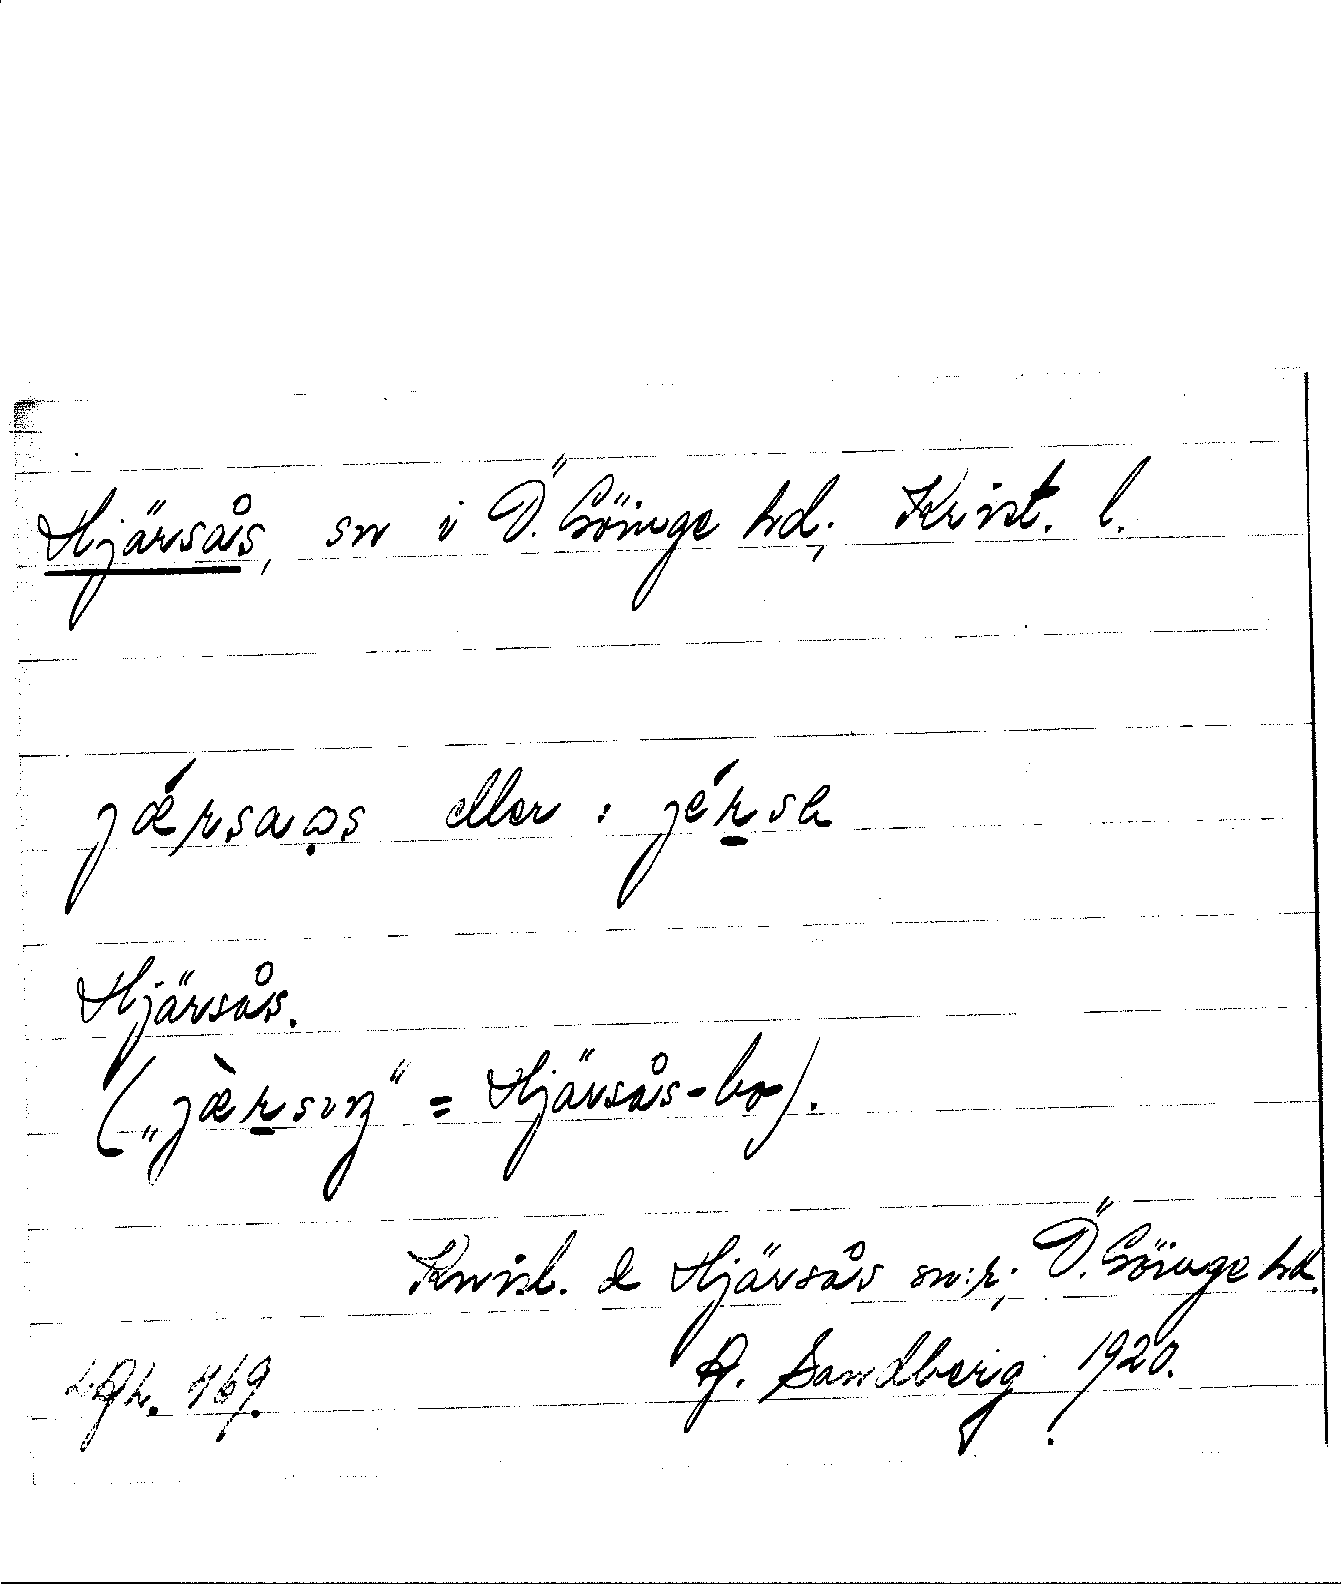 Hjärsås, sn i Ö. Göinge hd; Krist. l.
jǽrsaǫs eller: jérsa
Hjärsås.
(„jæ̀rsiŋ“ = Hjärsås-bo).
Krist. o Hjärsås sn:r; Ö. Göinge hd.
Sandberg 1920.
169.